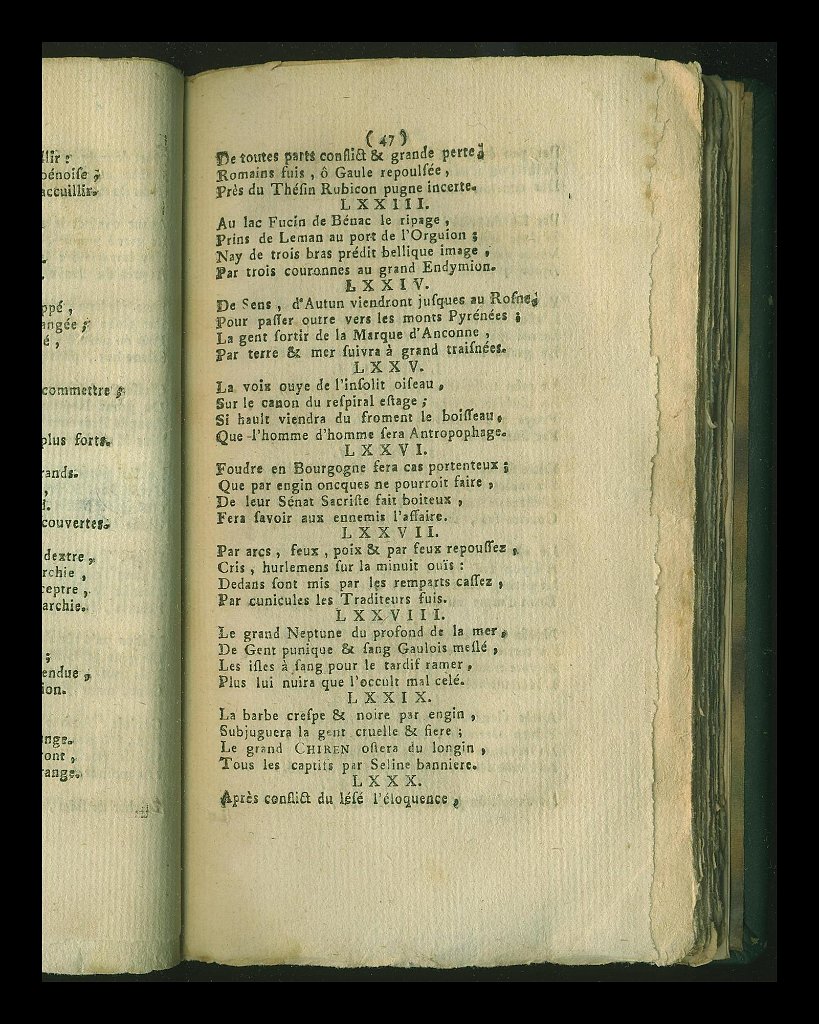 llir :
bénoiſe ;
accuillir.
ppé ,
angée ;
é ,
commettre ;
plus forts.
rands.
,
d.
couvertes.
dextre ,
rchie ,
ceptre ,
archie.
;
endue ,
ion.
nge.
ront ,
range.
( 47 )
De toutes parts conflict & grande perte ;
Romains fuis , ô Gaule repoulſée ,
Près du Théſin Rubicon pugne incerte.
LXXIII.
Au lac Fucin de Bénac le ripage ,
Prins de Leman au port de l'Orguion ;
Nay de trois bras prédit bellique image ,
Par trois couronnes au grand Endymion.
LXXIV.
De Sens , d'Autun viendront juſques au Roſne ;
Pour paſſer outre vers les monts Pyrénées ;
La gent ſortir de la Marque d'Anconne ,
Par terre & mer ſuivra à grand traiſnées.
LXXV.
La voix ouye de l'inſolit oiſeau ,
Sur le canon du reſpiral eſtage ;
Si hault viendra du froment le boiſſeau ,
Que l'homme d'homme ſera Antropophage.
LXXVI.
Foudre en Bourgogne ſera cas portenteux ;
Que par engin oncques ne pourroit faire ,
De leur Sénat Sacriſte fait boiteux ,
Fera ſavoir aux ennemis l'affaire.
LXXVII.
Par arcs , feux , poix & par feux repouſſez ,
Cris , hurlemens ſur la minuit ouïs :
Dedans ſont mis par les remparts caſſez ,
Par cunicules les Traditeurs fuis.
LXXVIII.
Le grand Neptune du profond de la mer ,
De Gent punique & ſang Gaulois meſlé ,
Les iſles à ſang pour le tardif ramer ,
Plus lui nuira que l'occult mal celé.
LXXIX.
La barbe creſpe & noire par engin ,
Subjuguera la gent cruelle & fiere ;
Le grand CHIREN oſtera du longin ,
Tous les captifs par Seline banniere.
LXXX.
Après conflict du léſé l'éloquence ,